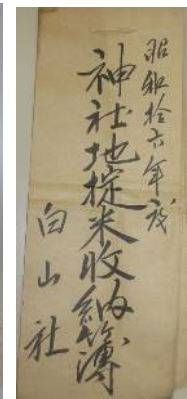 昭和拾六年度
神社地掟米收納簿
白山社